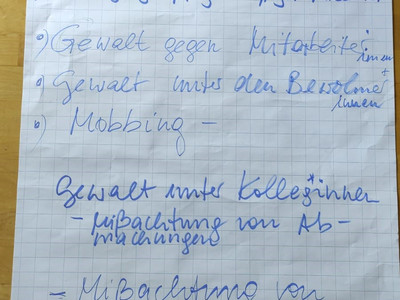 a) Gewalt gegen Mitarbeiter
innen
a) Gewalt unter den Bewohner
innen
b) Mobbing –
Gewalt unter Kolleg*innen
- Mißachtung von Ab-
machungen
- Mißachtung von